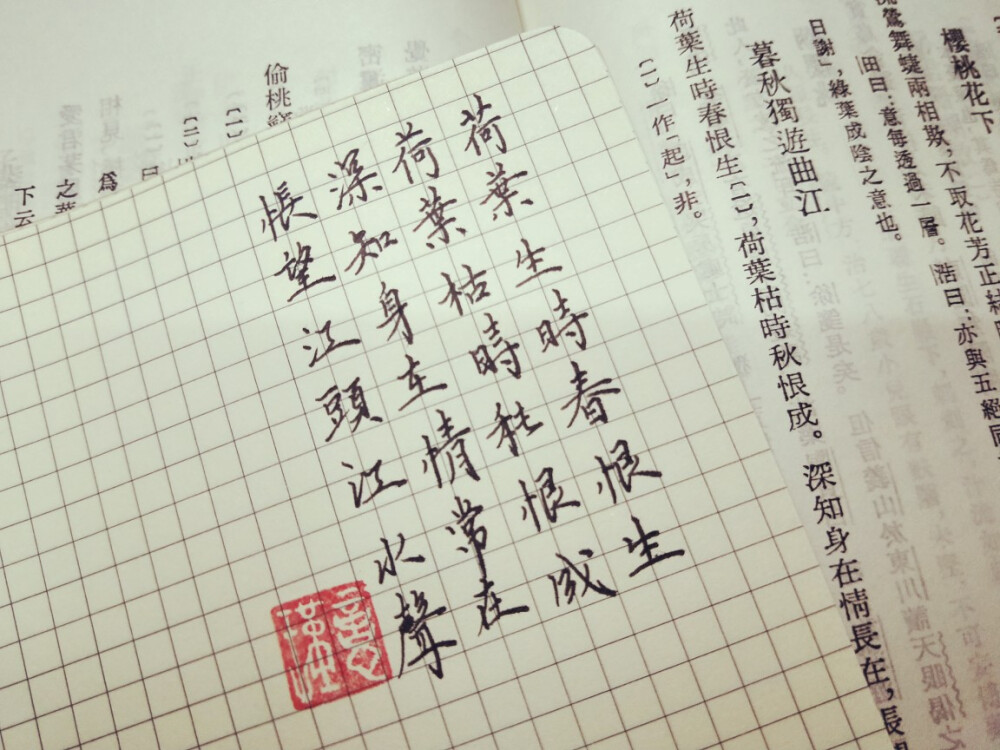 櫻桃花下
流鶯舞蝶兩相欺,不取花芳正結
田曰:意每透過一層。浩曰:亦與五經同
日謝」,綠葉成陰之意也。
暮秋獨遊曲江
荷葉生時春恨生〔一〕,荷葉枯時秋恨成。深知身在情長在,悵
〔一〕一作「起」,非。
荷葉生時春恨生
荷葉枯時秋恨成
深知身在情常在
悵望江頭江水聲
偷桃
〔一〕
〔二〕
曰
為
之
下云